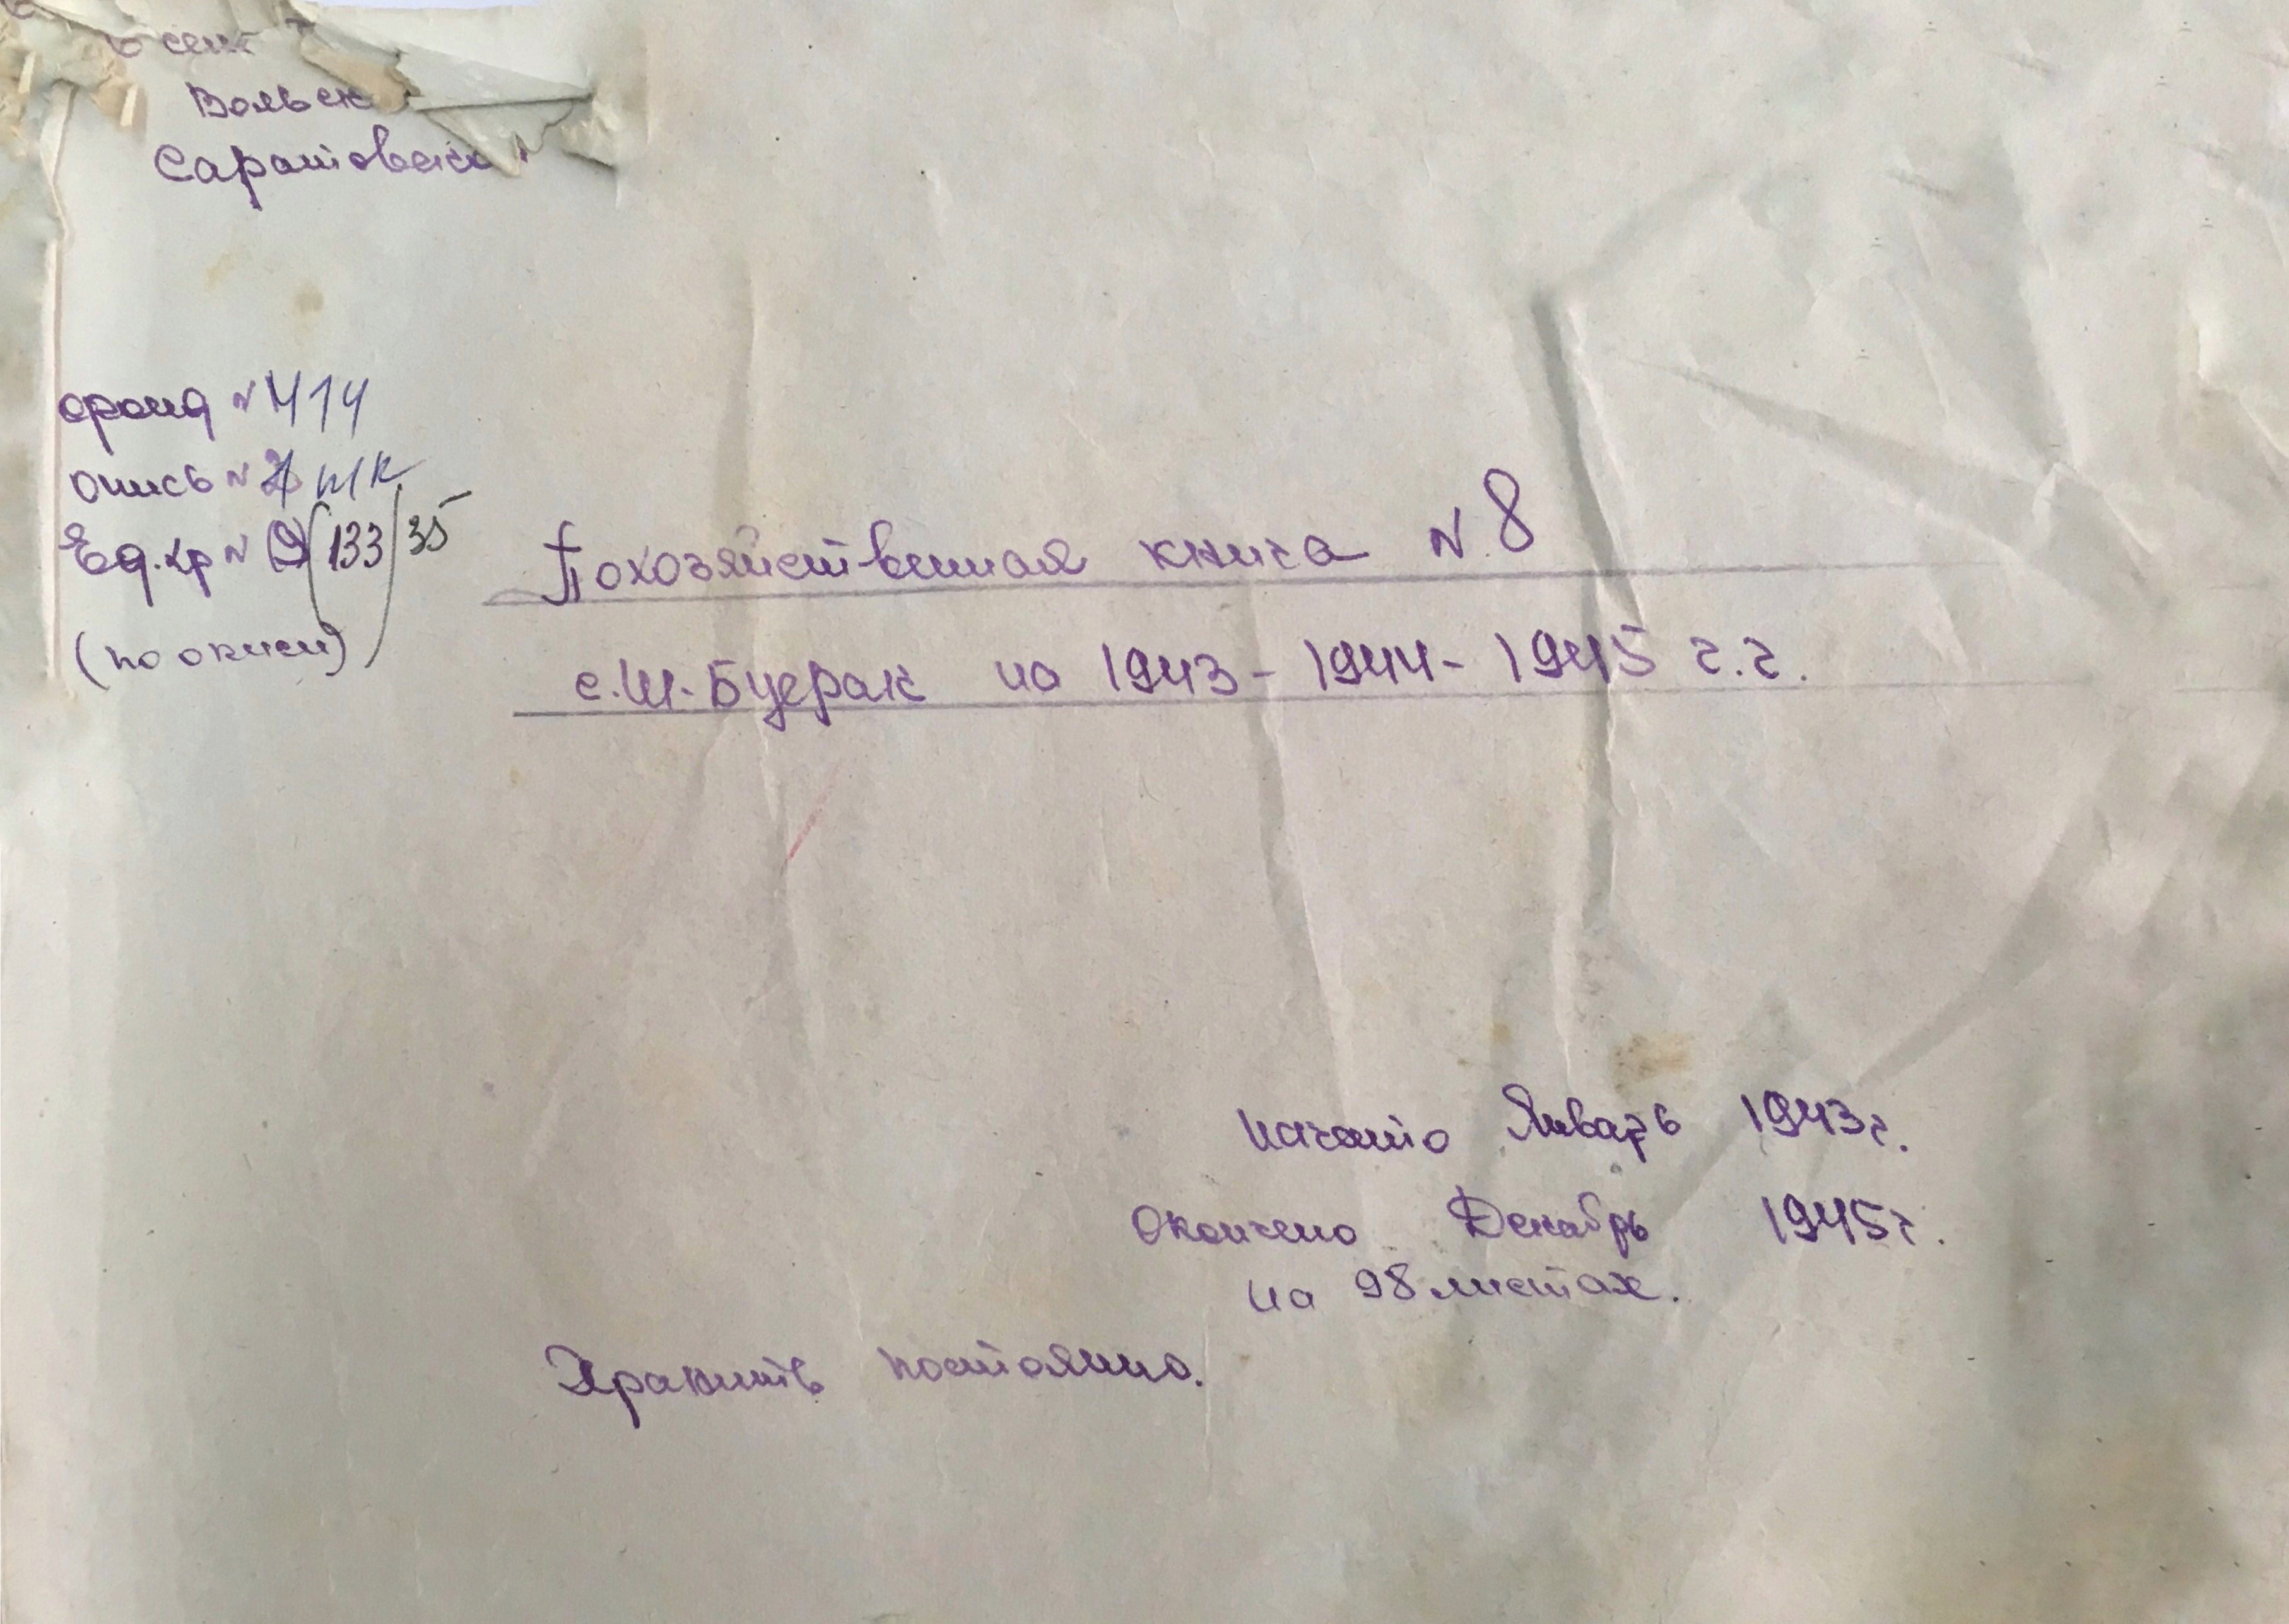 Вольск
Саратовско
фонд № 414
опись № 2 шк
Ед.хр № 9 (133) 35
(по описи)
Похозяйственная книга № 8
с.Ш.Буерак на 1943 - 1944 - 1945 г.г.
начато Январь 1943г.
Окончено Декабрь 1945г.
на 98 листах.
Хранить постоянно.